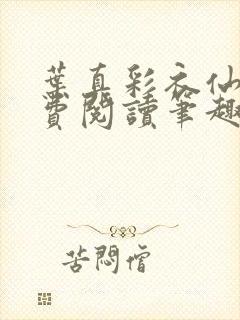 葉真彩衣仙
費閱讀筆趣
苦悶僧